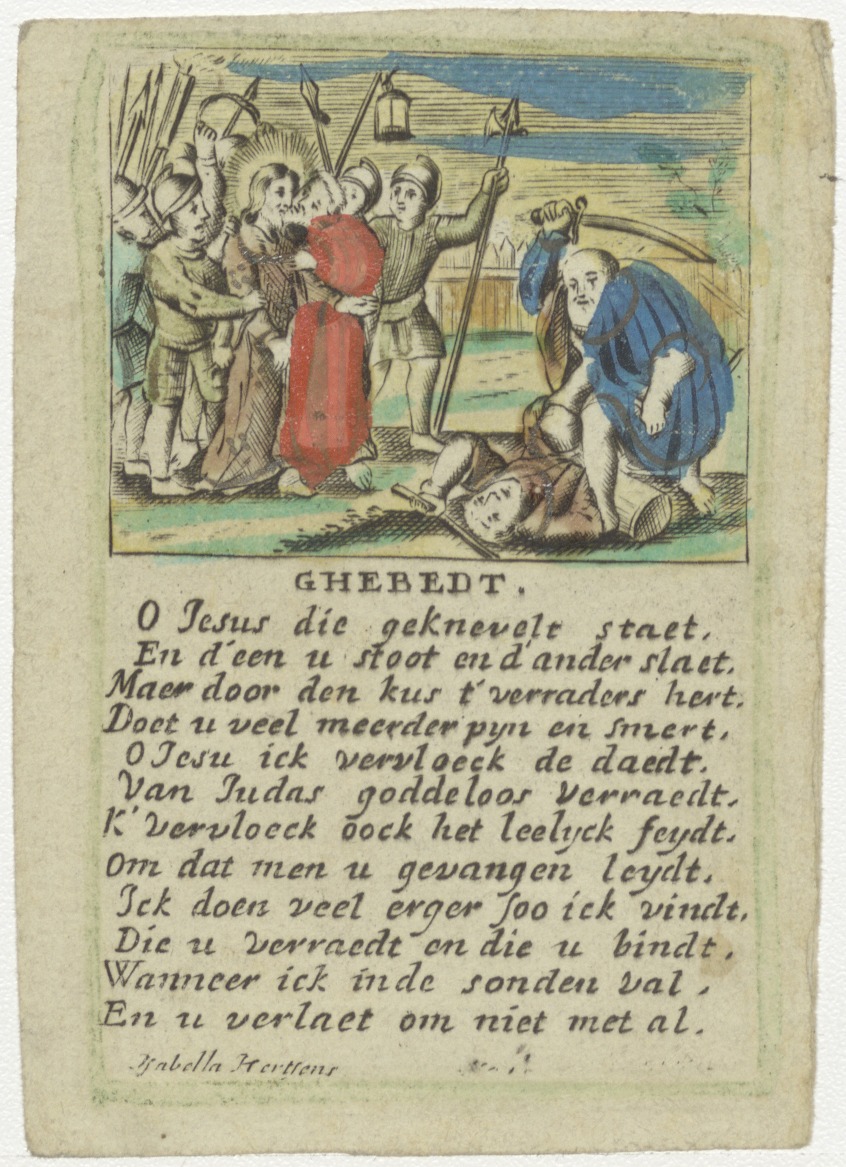 GHEBEDT.
O Jesus die geknevelt staet,
En d'een u stoot en d'ander slaet.
Maer door den kus t'verraders hert.
Doet u veel meerder pyn en smert.
O Jesu ick vervloeck de daedt.
Van Judas goddeloos verraedt.
K'vervloeck oock het leelyck feydt.
Om dat men u gevangen leydt.
Ick doen veel erger soo ick vindt,
Die u verraedt en die u bindt,
Wanneer ick inde sonden val,
En u verlaet om niet met al.
Ysabella Hertsens